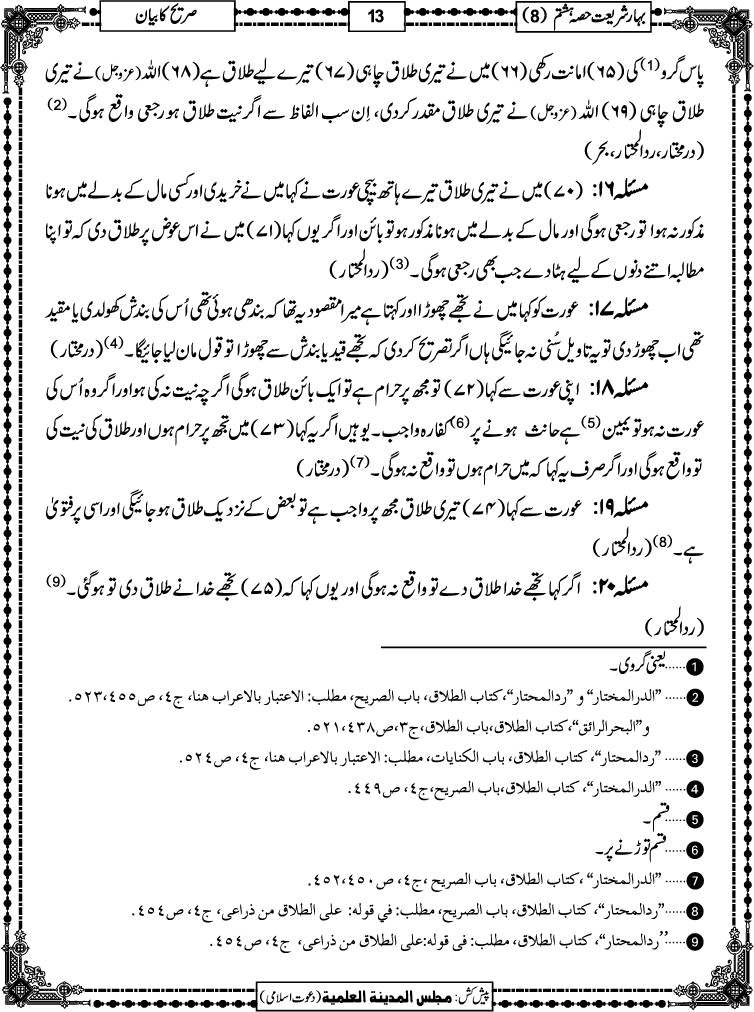 بہار شریعت حصہ ہشتم (8)
13
صریح کا بیان
پاس گرو(1) کی (۶۵) امانت رکھی (۶۶) میں نے تیری طلاق چاہی (۶۷) تیرے لیے طلاق ہے (۶۸) اللہ (عزوجل) نے تیری
طلاق چاہی (۶۹) اللہ (عزوجل) نے تیری طلاق مقدر کردی، اِن سب الفاظ سے اگر نیت طلاق ہو رجعی واقع ہوگی۔(2)
(درمختار، ردالمحتار، بحر)
مسئلہ ۱۶: (۷۰) میں نے تیری طلاق تیرے ہاتھ بیچی عورت نے کہا میں نے خریدی اور کسی مال کے بدلے میں ہونا
مذکور نہ ہوا تو رجعی ہوگی اور مال کے بدلے میں ہونا مذکور ہو تو بائن اور اگر یوں کہا (۷۱) میں نے اس عوض پر طلاق دی کہ تو اپنا
مطالبہ اتنے دنوں کے لیے ہٹا دے جب بھی رجعی ہوگی۔(3) (ردالمحتار)
مسئلہ ۱۷: عورت کو کہا میں نے تجھے چھوڑا اور کہتا ہے میرا مقصود یہ تھا کہ بندھی ہوئی تھی اُس کی بندش کھولدی یا مقید
تھی اب چھوڑ دی تو یہ تاویل سُنی نہ جائیگی ہاں اگر تصریح کردی کہ تجھے قید یا بندش سے چھوڑا تو قول مان لیا جائیگا۔(4) (درمختار)
مسئلہ ۱۸: اپنی عورت سے کہا (۷۲) تو مجھ پر حرام ہے تو ایک بائن طلاق ہوگی اگرچہ نیت نہ کی ہو اور اگر وہ اُس کی
عورت نہ ہو تو یمین(5) ہے حانث ہونے پر(6) کفارہ واجب۔ یوہیں اگر یہ کہا (۷۳) میں تجھ پر حرام ہوں اور طلاق کی نیت کی
تو واقع ہوگی اور اگر صرف یہ کہا کہ میں حرام ہوں تو واقع نہ ہوگی۔(7) (درمختار)
مسئلہ ۱۹: عورت سے کہا (۷۴) تیری طلاق مجھ پر واجب ہے تو بعض کے نزدیک طلاق ہو جائیگی اور اسی پر فتویٰ
ہے۔(8) (ردالمحتار)
مسئلہ ۲۰: اگر کہا تجھے خدا طلاق دے تو واقع نہ ہوگی اور یوں کہا کہ (۷۵) تجھے خدا نے طلاق دی تو ہوگئی۔(9)
(ردالمحتار)
1......یعنی گروی۔
2......"الدرالمختار" و "ردالمحتار"،کتاب الطلاق، باب الصریح، مطلب: الاعتبار بالاعراب ھنا، ج٤، ص٤٥٥،٥٢٣.
و"البحرالرائق"،کتاب الطلاق،باب الطلاق،ج٣،ص٤٣٨،٥٢١.
3......"ردالمحتار"، کتاب الطلاق، باب الکنایات، مطلب: الاعتبار بالاعراب ھنا، ج٤، ص٥٢٤.
4......"الدرالمختار"، کتاب الطلاق،باب الصریح،ج٤، ص٤٤٩.
5......قسم۔
6......قسم توڑنے پر۔
7......"الدرالمختار" ،کتاب الطلاق، باب الصریح ،ج٤، ص٤٥٠،٤٥٢.
8......"ردالمحتار"، کتاب الطلاق، باب الصریح، مطلب: في قوله: علی الطلاق من ذراعی، ج٤، ص٤٥٤.
9......"ردالمحتار"، کتاب الطلاق، مطلب: فی قوله:علی الطلاق من ذراعی، ج٤، ص٤٥٤.
پیش کش: مجلس المدینة العلمیة (دعوت اسلامی)